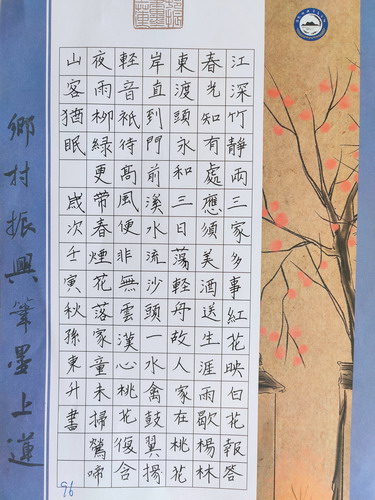 江深竹靜兩三家多事紅花映白花報答
春光知有處應須美酒送生涯雨歇楊林
東渡頭永和三日蕩輕舟故人家在桃花
岸直到門前溪水流沙頭一水禽鼓翼揚
輕音祇待高風便非無雲漢心桃花復含
夜雨柳綠更帶春煙花落家童未掃鶯啼
山客猶眠 歲次壬寅秋孫東升書
鄉村振興筆墨上蓮
96